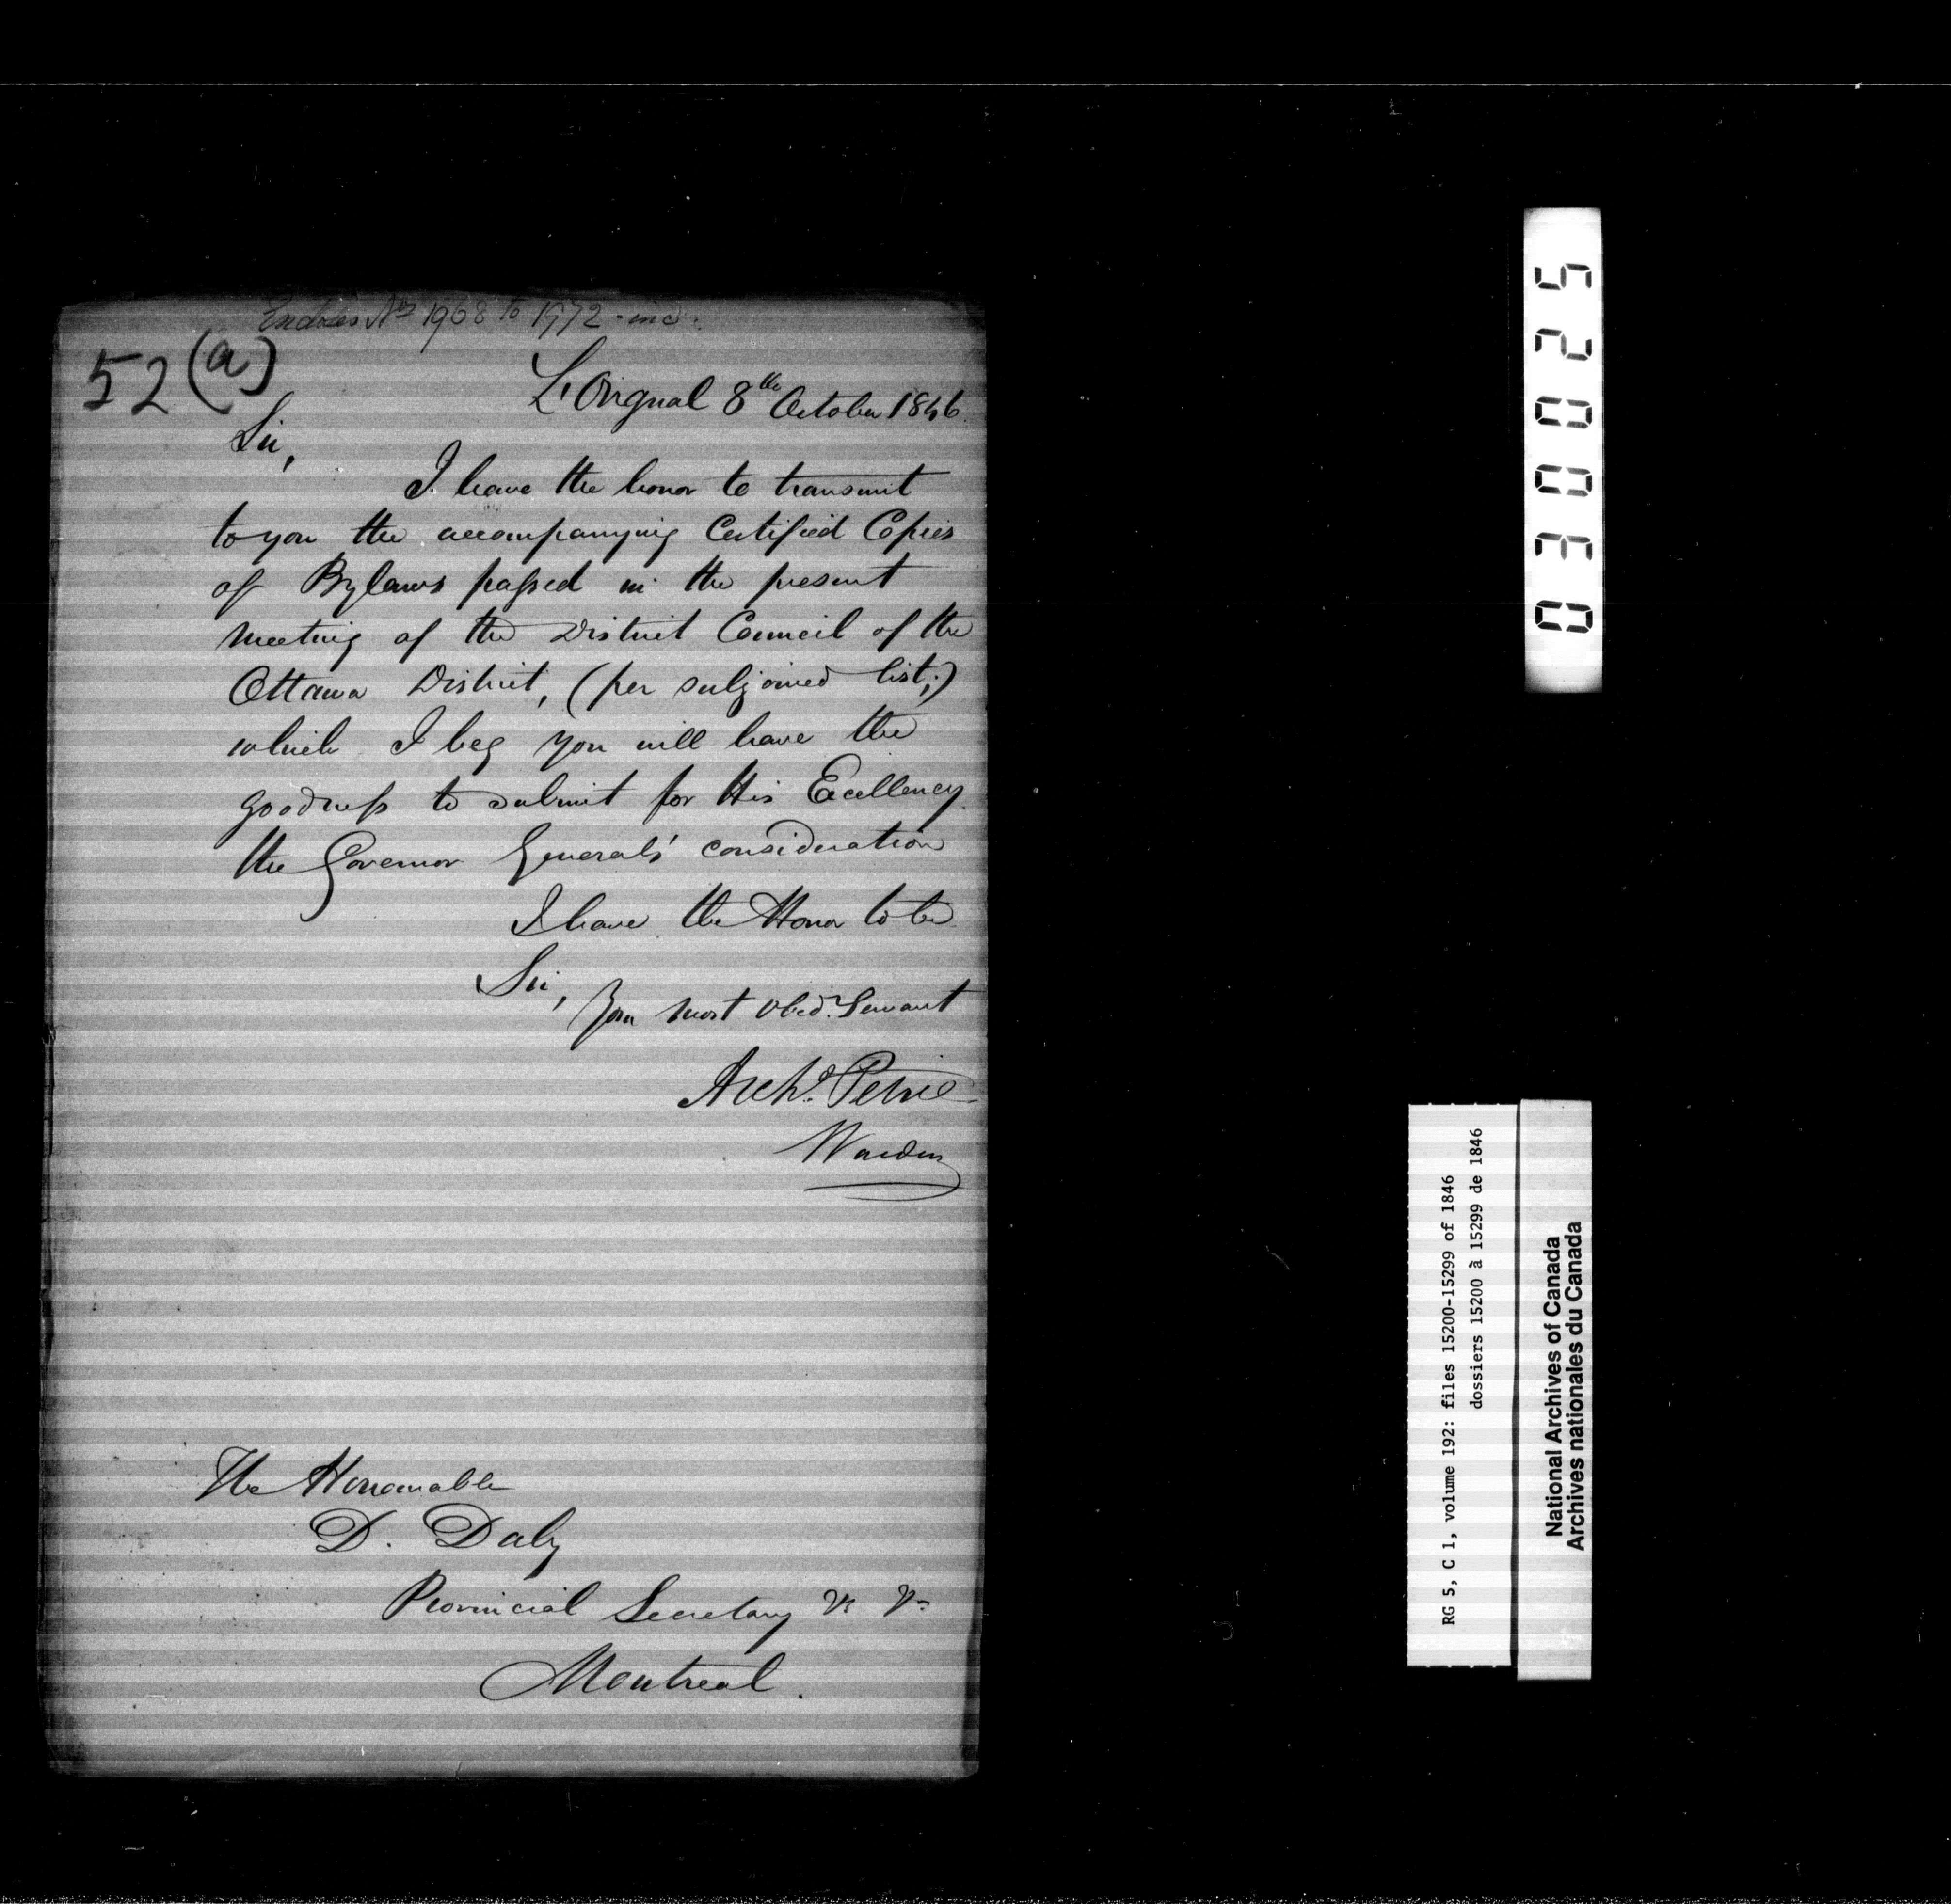 Encloses Nos 1968 to 1972 - inc.
52 (a)
L'Orignal 8th October 1846.
Sir,
I have the honor to transmit
to you the accompanying Certified Copies
of Bylaws passed in the present
Meeting of the District Council of the
Ottawa District, (per subjoined list;)
which I beg you will have the
goodness to submit for His Excellency
the Governor General's consideration
I have the Honor to be
Sir,
Your most Obed. Servant
Archd. Petrie
Warden
The Honourable
D. Daly
Provincial Secretary &c &c
Montreal.
030025
RG 5, C 1, volume 192: files 15200-15299 of 1846
dossiers 15200 à 15299 de 1846
National Archives of Canada
Archives nationales du Canada